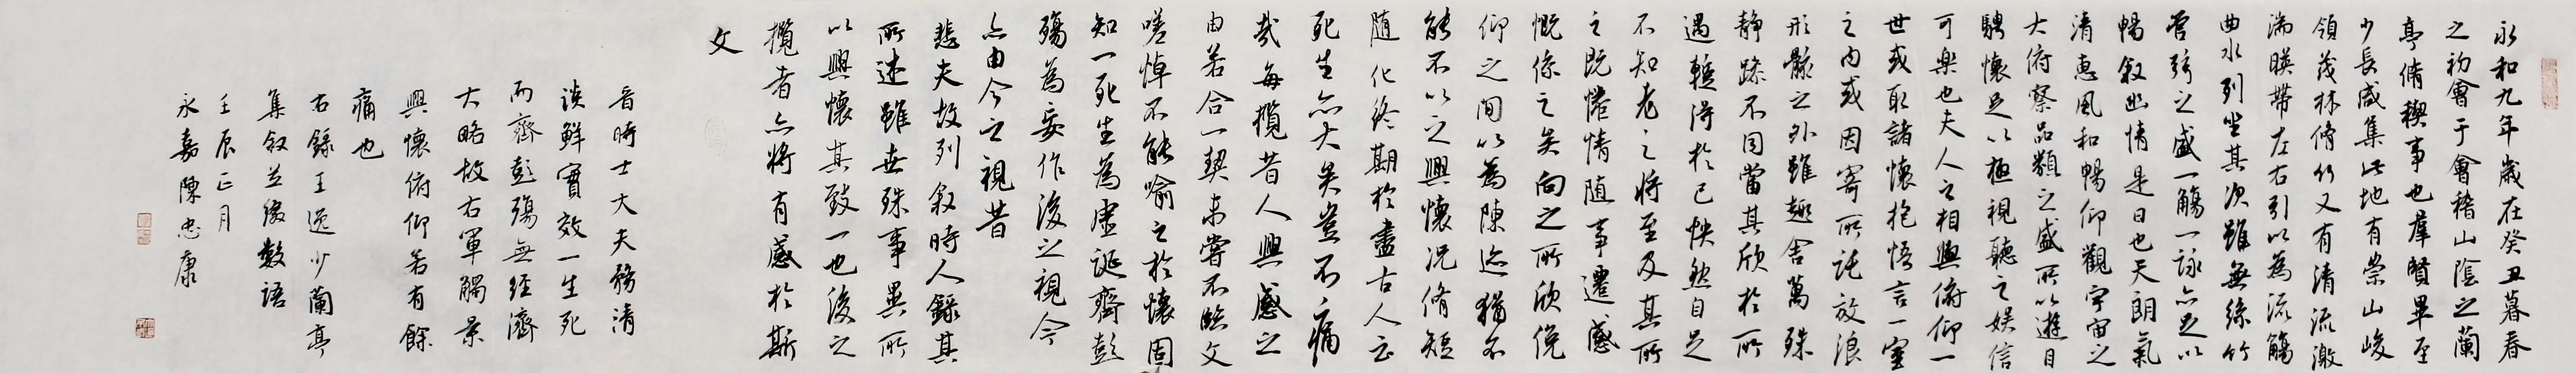 永和九年歲在癸丑暮春
之初會于會稽山陰之蘭
亭脩稧事也羣賢畢至
少長咸集此地有崇山峻
領茂林脩竹又有清流激
湍暎帶左右引以為流觴
曲水列坐其次雖無絲竹
管弦之盛一觴一詠亦足以
暢敘幽情是日也天朗氣
清惠風和暢仰觀宇宙之
大俯察品類之盛所以遊目
騁懷足以極視聽之娛信
可樂也夫人之相與俯仰一
世或取諸懷抱悟言一室
之內或因寄所託放浪
形骸之外雖趣舍萬殊
靜躁不同當其欣於所
遇輒得於己怏然自足
不知老之將至及其所
之既惓情隨事遷感
慨係之矣向之所欣俛
仰之間以為陳迹猶不
能不以之興懷況脩短
隨化終期於盡古人云
死生亦大矣豈不痛
哉每攬昔人興感之
由若合一契未嘗不臨文
嗟悼不能喻之於懷固
知一死生為虛誕齊彭
殤為妄作後之視今
亦由今之視昔
悲夫故列敘時人錄其
所述雖世殊事異所
以興懷其致一也後之
攬者亦將有感於斯
文
晉時士大夫務清
談鮮實效一生死
而齊彭殤無經濟
大略故右軍觸景
興懷俯仰若有餘
痛也
右錄王逸少蘭亭
集敘並綴數語
壬辰正月
永嘉陳忠康